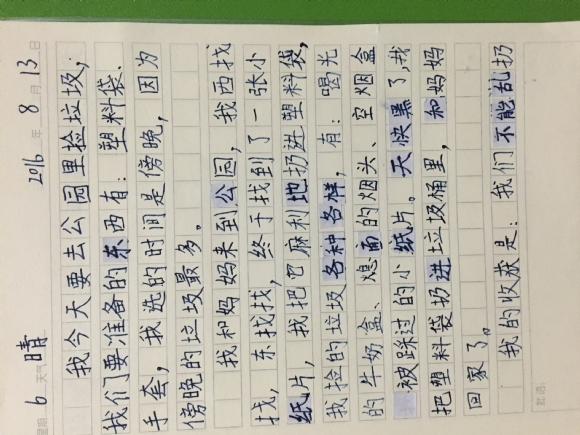 星期 6 天气 晴 2016 年 8 月 13 日
我今天要去公园里捡垃圾，
我们要准备的东西有：塑料袋、
手套，我选的时间是傍晚，因为
傍晚的垃圾最多。
我和妈妈来到公园，我西找
找，东找找，终于找到了一张小
纸片，我把它麻利地扔进塑料袋，
我捡的垃圾各种各样，有：喝光
的牛奶盒、熄面的烟头、空烟盒
被踩过的小纸片。天快黑了，我
把塑料袋扔进垃圾桶里，和妈妈
回家了。
我的收获是：我们不能乱扔